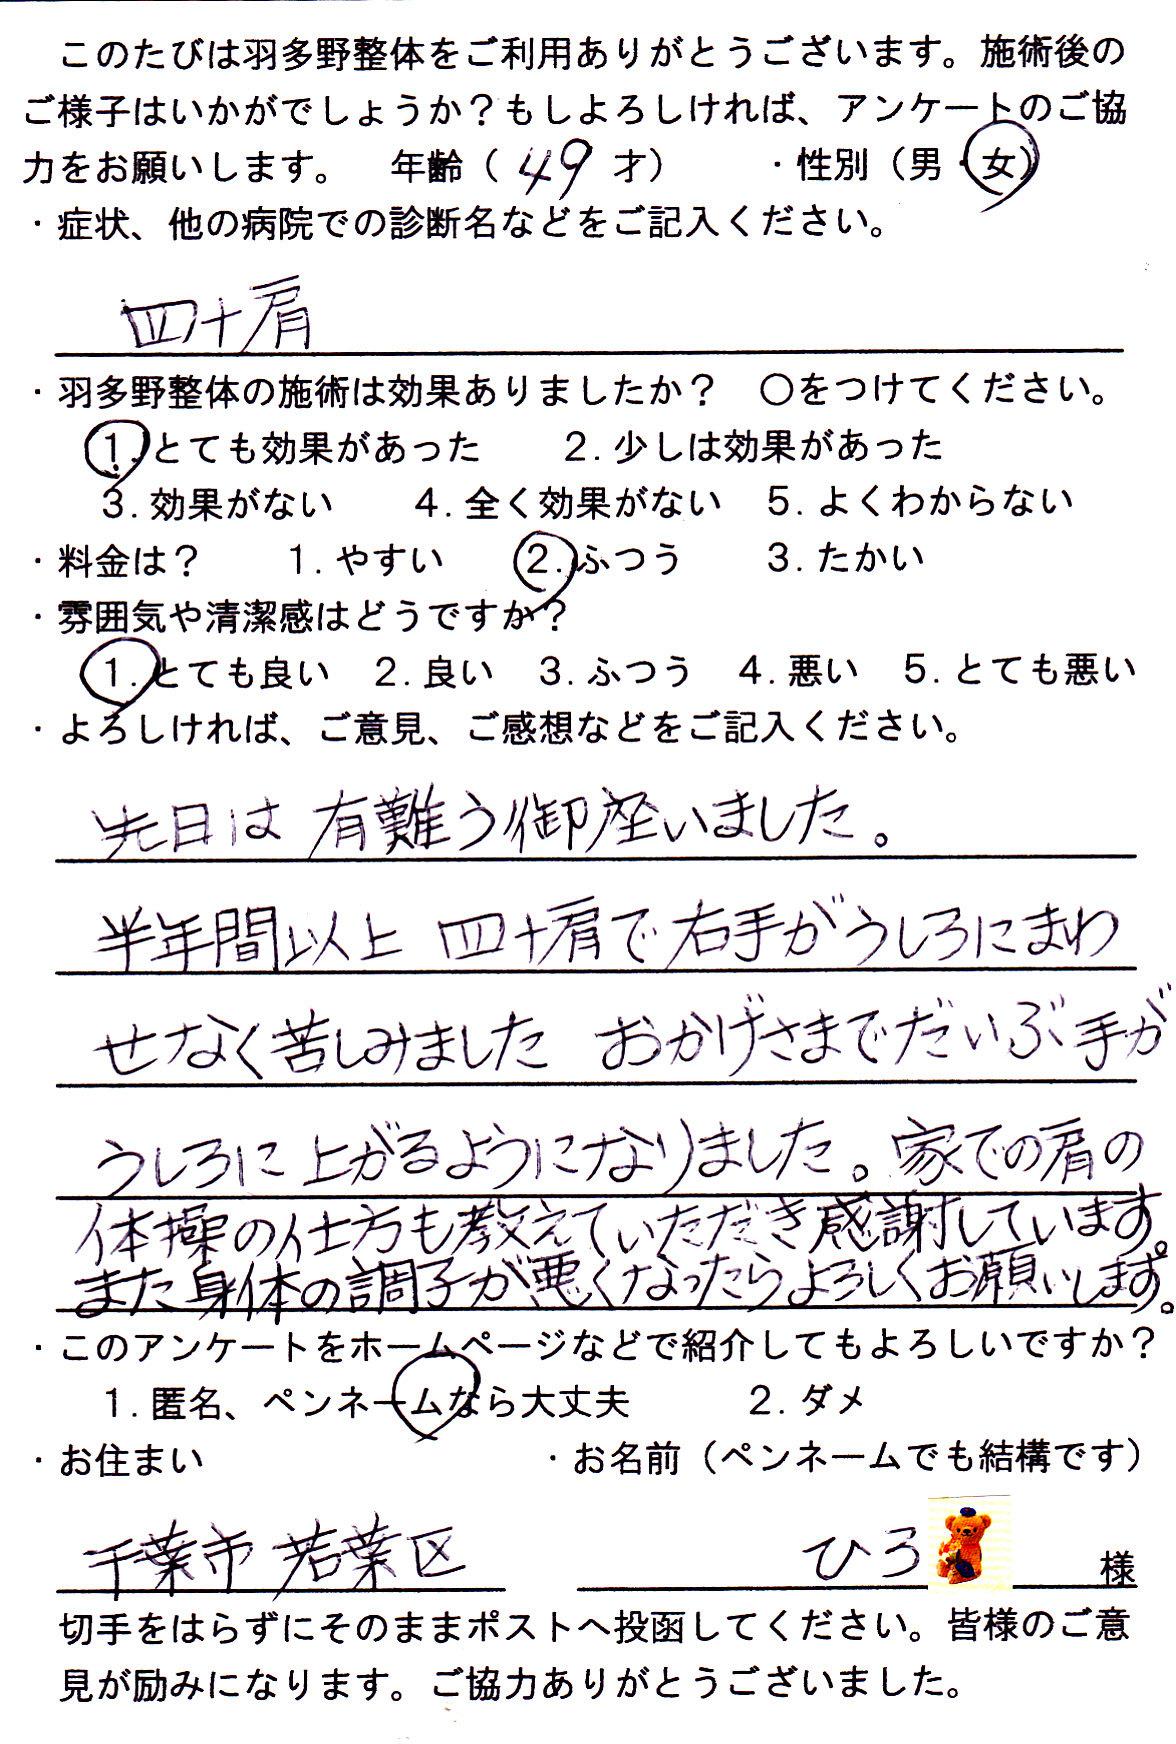 このたびは羽多野整体をご利用ありがとうございます。施術後の
ご様子はいかがでしょうか？もしよろしければ、アンケートのご協
力をお願いします。 年齢（ 49 才） ・性別（男・女）
・症状、他の病院での診断名などをご記入ください。
四十肩
・羽多野整体の施術は効果ありましたか？ ○をつけてください。
1.とても効果があった 2.少しは効果があった
3.効果がない 4.全く効果がない 5.よくわからない
・料金は？ 1.やすい 2.ふつう 3.たかい
・雰囲気や清潔感はどうですか？
1.とても良い 2.良い 3.ふつう 4.悪い 5.とても悪い
・よろしければ、ご意見、ご感想などをご記入ください。
先日は 有難う御座いました。
半年間以上 四十肩で右手がうしろにまわ
せなく苦しみました おかげさまでだいぶ手が
うしろに上がるようになりました。家での肩の
体操の仕方も教えていただき感謝しています。
また身体の調子が悪くなったらよろしくお願いします。
・このアンケートをホームページなどで紹介してもよろしいですか？
1.匿名、ペンネームなら大丈夫 2.ダメ
・お住まい ・お名前（ペンネームでも結構です）
千葉市 若葉区 ひろ 様
切手をはらずにそのままポストへ投函してください。皆様のご意
見が励みになります。ご協力ありがとうございました。